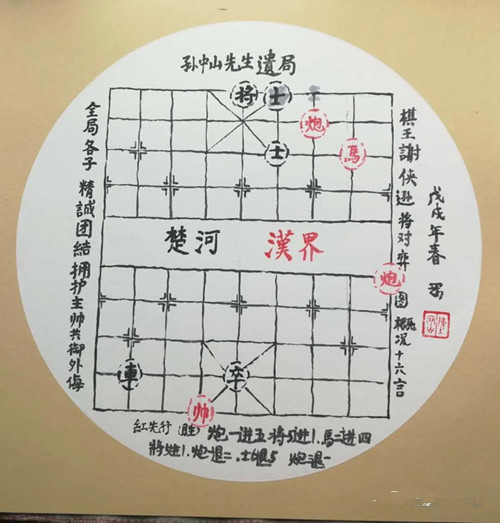 孙中山先生遺局
棋王謝俠遜将对弈图概况十六言
戊戌年春
全局各子精誠团結拥护主帅共御外侮
將士
炮
士馬
楚河漢界
炮
車卒
帅
红先行(胜)炮一进五.将5进1.馬二进四
將5进1.炮退二.士6退5炮退一